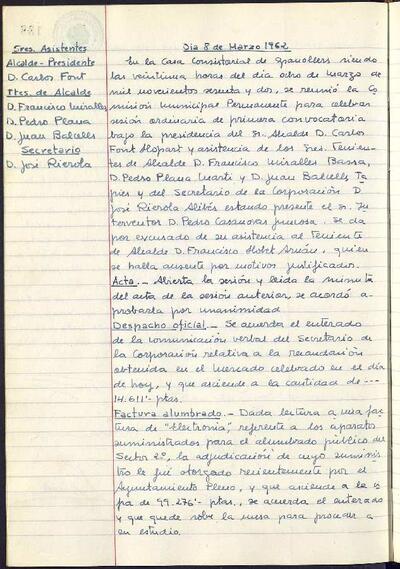 Sres. Asistentes
Alcalde-Presidente
D. Carlos Font
Ttes. de Alcalde
D. Francisco Miralles
D. Pedro Plana
D. Juan Balcells
Secretario
D. José Rierola
Dia 8 de Marzo 1962
En la Casa Consistorial de Granollers siendo
las veintiuna horas del dia ocho de marzo de
mil novecientos sesenta y dos, se reunió la Co-
misión Municipal Permanente para celebrar
sesión ordinaria de primera convocatoria
bajo la presidencia del Sr. Alcalde D. Carlos
Font Llopart y asistencia de los Sres. Tenien-
tes de Alcalde D. Francisco Miralles Bassa,
D. Pedro Plana Marti y D. Juan Balcells Ta-
pies y del Secretario de la Corporación D.
José Rierola Alibés estando presente el Sr. In-
terventor D. Pedro Casanovas. Se da
por excusado de su asistencia al Teniente
de Alcalde D. Francisco Llobet, quien
se halla ausente por motivos justificados.
Acta.- Abierta la sesión y leida la minuta
del acta de la sesión anterior, se acordó a-
probarla por unanimidad
Despacho oficial.- Se acuerda el enterado
de la comunicación verbal del Secretario de
la Corporación relativa a la recaudación
obtenida en el mercado celebrado en el dia
de hoy, y que asciende a la cantidad de ---
14.611'- ptas.
Factura alumbrado.- Dada lectura a una fac-
tura de "Electronia", referente a los aparatos
suministrados para el alumbrado público del
Sector 2º, la adjudicación de cuyo suminis-
tro le fué otorgado recientemente por el
Ayuntamiento Pleno, y que asciende a la
pa de 99.276'- ptas., se acuerda el enterado
y que quede sobre la mesa para proceder a
su estudio.